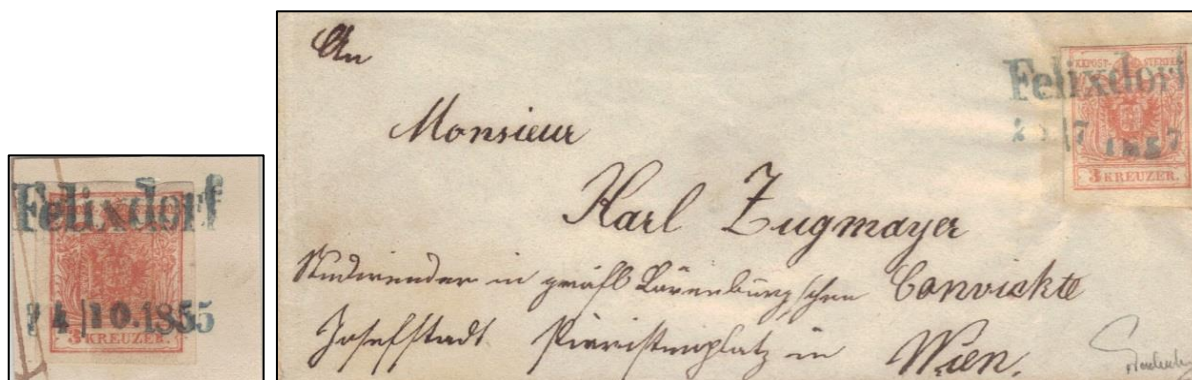 Felixdorf
24|10.1855
3 KREUZER.
An
Monsieur
Karl Zugmayer
Studirender in gräfl Löwenburg'schen Convickte
Josefstadt Piaristenplatz in Wien.
Felixdorf
KKPOST-STEMPEL
|7 1857
3 KREUZER.